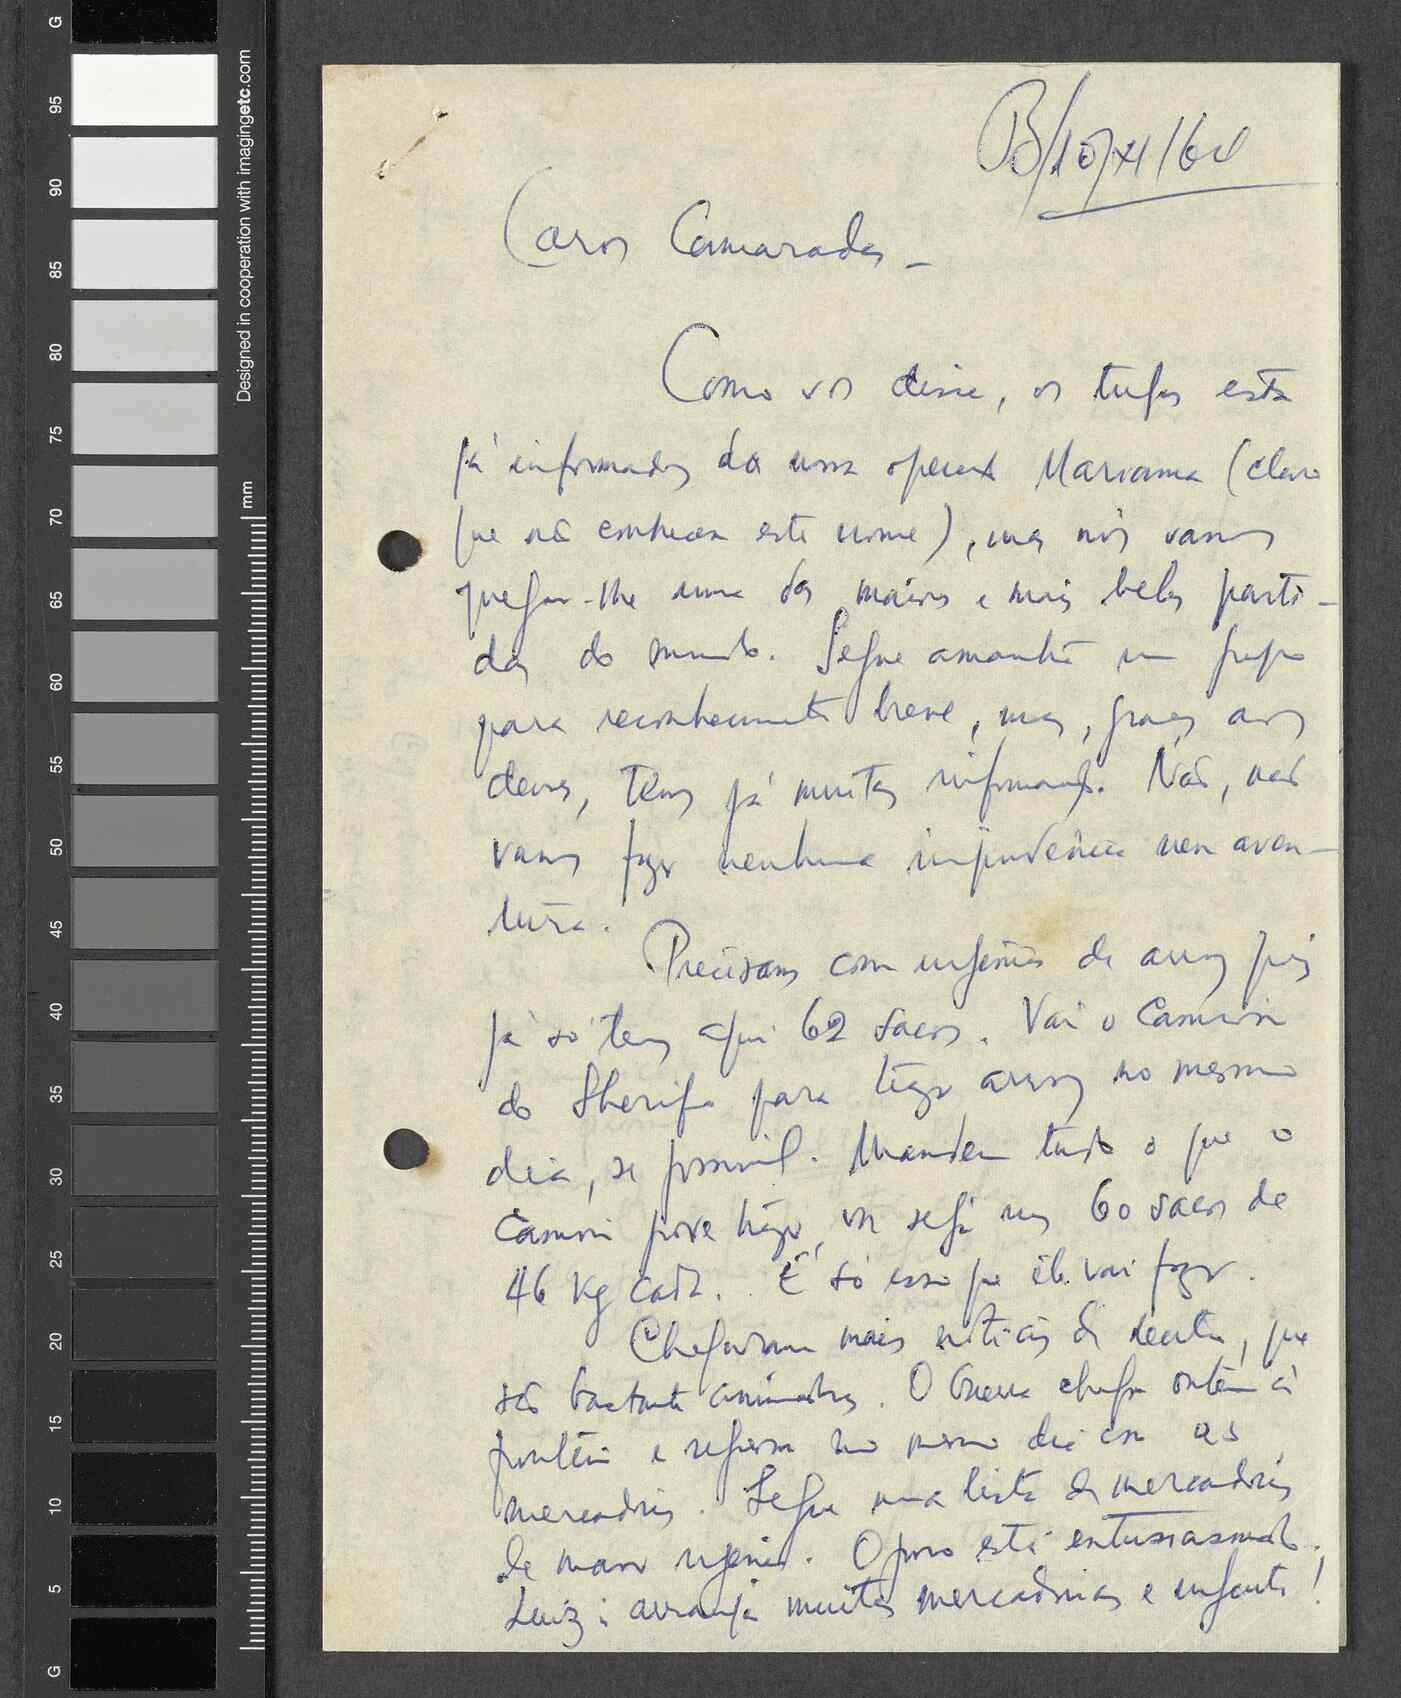 B/10/XI/64
Caros Camaradas –
Como vos disse, os tugas estão
já informados da nossa operação Marianna (claro
que não conhecem este nome), mas nós vamos
pregar-lhe uma das maiores e mais belas parti-
das do mundo. Segue amanhã um grupo
para reconhecimento breve, mas, graças aos
deuses, temos já muitas informações. Não, não
vamos fazer nenhuma imprudência nem aven-
tura.
Precisamos com urgência de arroz pois
já só temos aqui 62 sacos. Vai o Camion
do Sherifo para trazer arroz no mesmo
dia, se possível. Mandem tudo o que o
Camion possa trazer, ou seja uns 60 sacos de
46 kg cada. É só isso que ele vai fazer.
Chegaram mais notícias de dentro, que
são bastante animadoras. O chega ontem à
fronteira e regressa no mesmo dia com as
mercadorias. Segue uma lista de mercadorias
de maior urgência. O povo está entusiasmado.
Luiz: arranja muitas mercadorias e urgente!
G
95
90
85
80
75
70
65
60
55
50
45
40
35
30
25
20
15
10
5
G
Designed in cooperation with imagingetc.com
mm